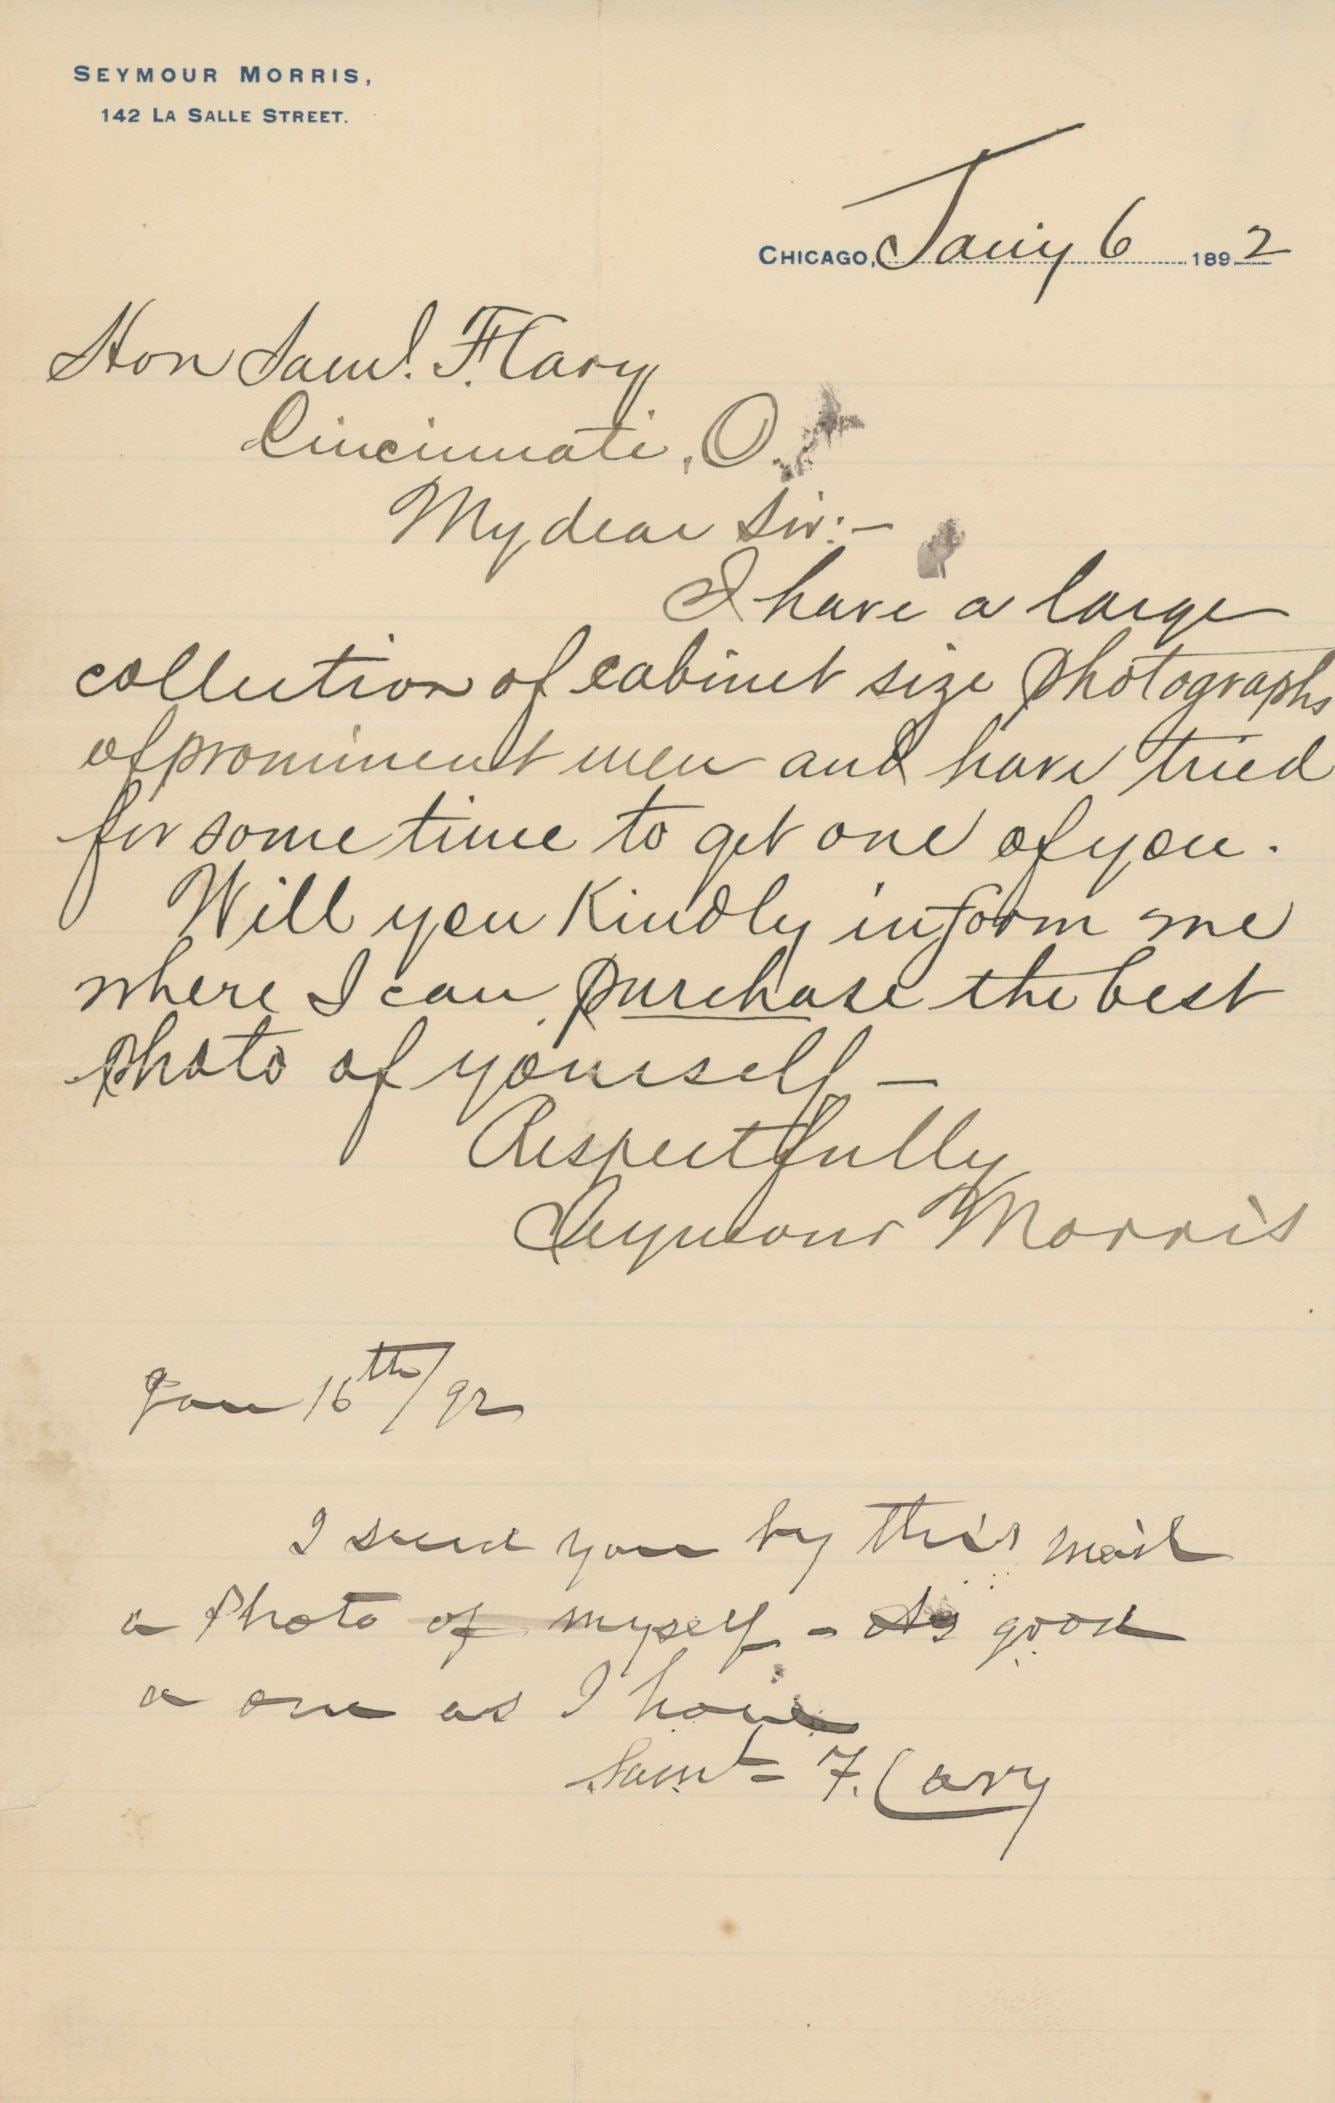 SEYMOUR MORRIS,
142 LA SALLE STREET.
CHICAGO, Jany 6 1892
Hon Saml. F. Cary
Cincinnati, O.
My dear Sir:-
I have a large
collection of cabinet size photographs
of prominent men and have tried
for some time to get one of you.
Will you kindly inform me
where I can purchase the best
photo of yourself -
Respectfully
Seymour Morris
Jan 16th/92
I send you by this mail
a Photo of myself - As good
a one as I have
Saml- F. Cary